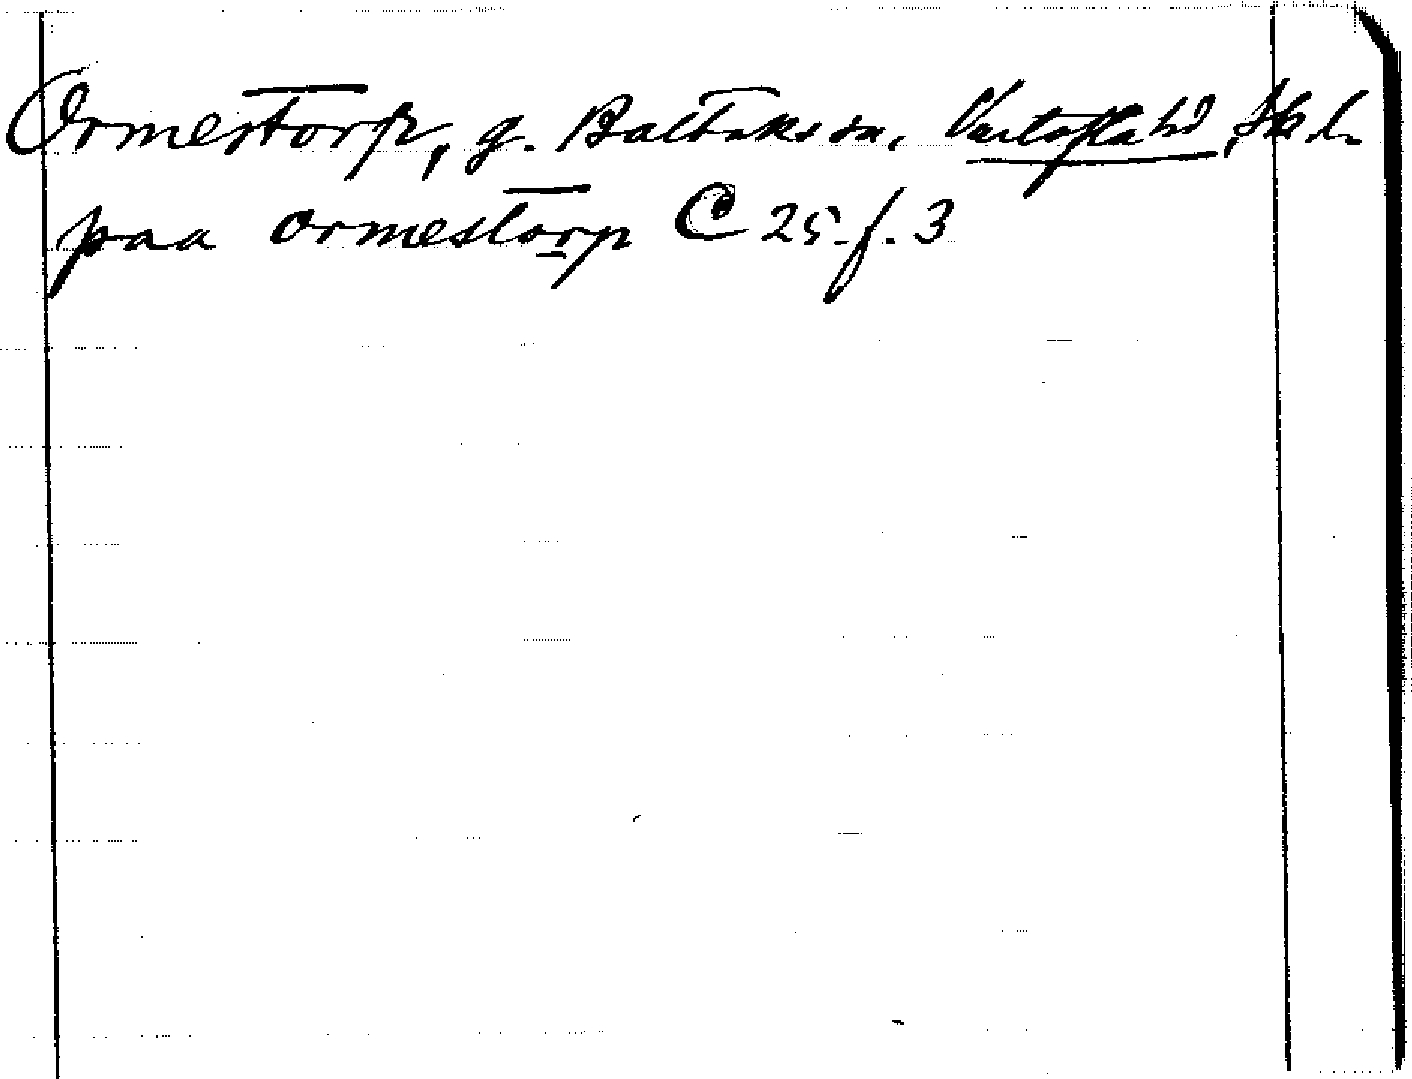 Ormestorp, g. Baltaks sn, Vartofta hd, Sk. l.
paa ormestorp C 25. f. 3